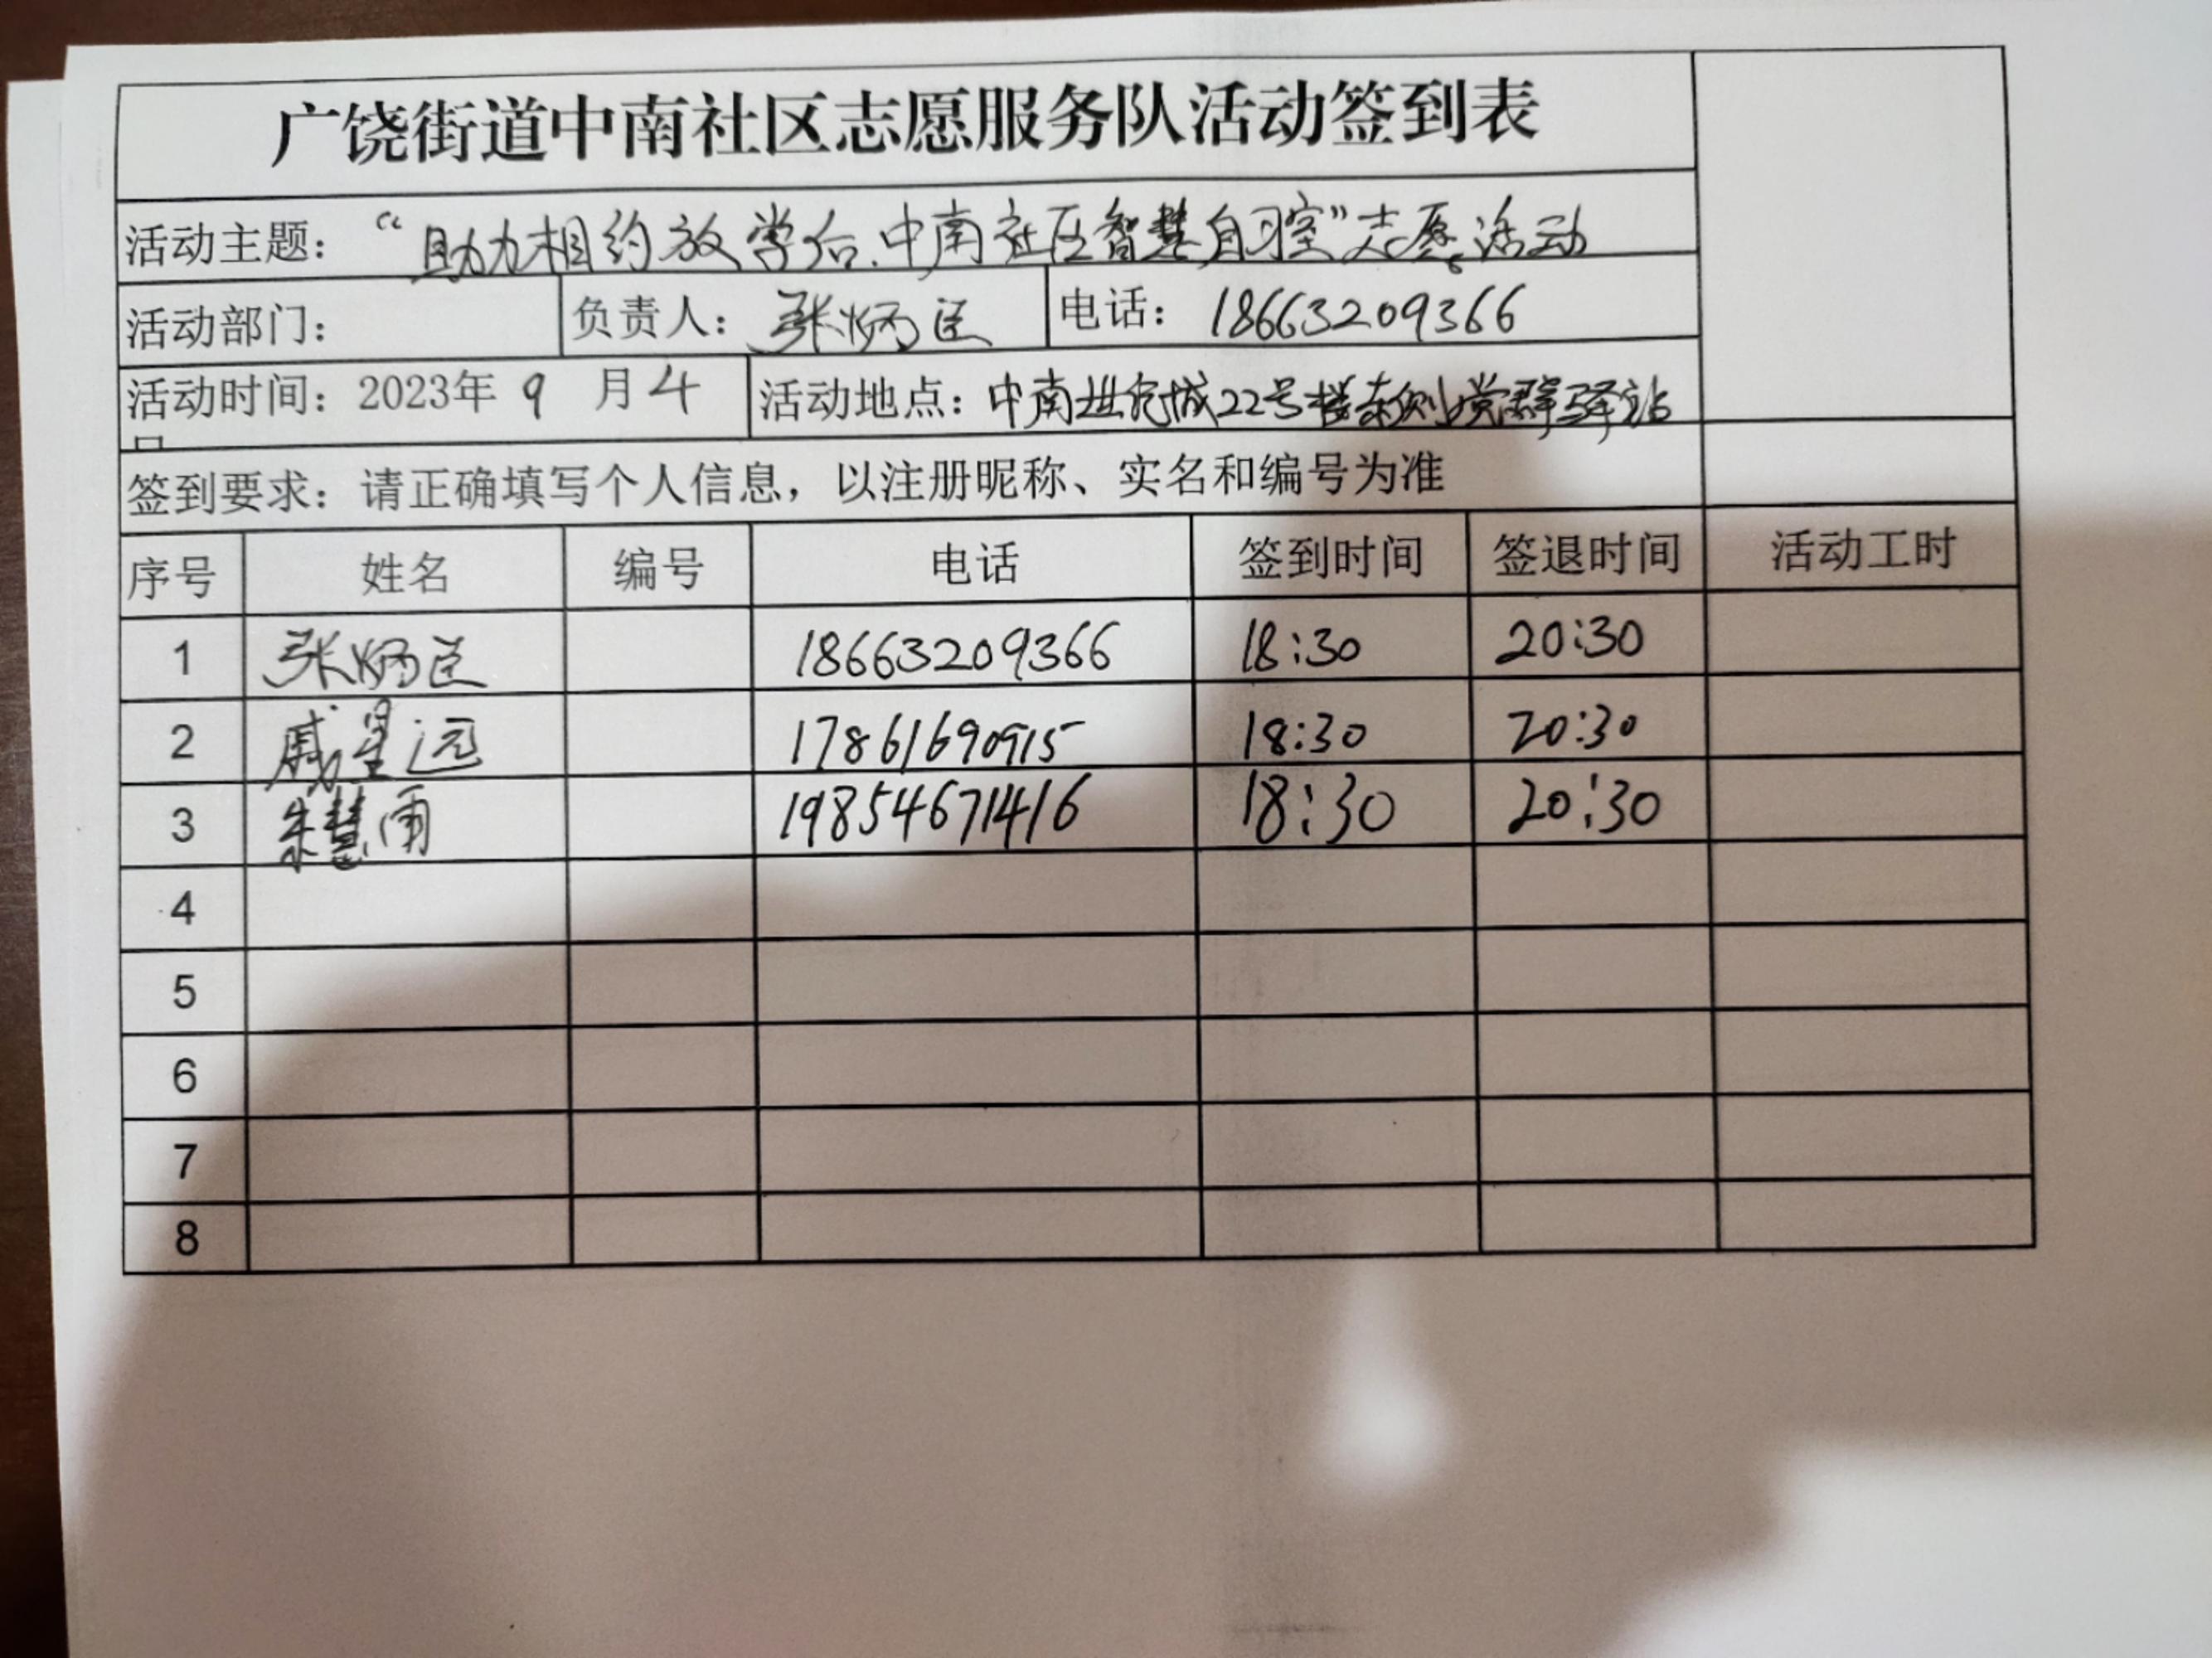 广饶街道中南社区志愿服务队活动签到表
活动主题：“助力相约放学后.中南社区智慧自习室”志愿活动
活动部门： 负责人：张炳臣 电话：18663209366
活动时间：2023年 9 月 4 活动地点：中南世纪城22号楼东侧党群驿站
日
签到要求：请正确填写个人信息，以注册昵称、实名和编号为准
序号 姓名 编号 电话 签到时间 签退时间 活动工时
1 张炳臣 18663209366 18:30 20:30
2 戚星远 17861690915 18:30 20:30
3 朱慧雨 19854671416 18:30 20:30
4
5
6
7
8